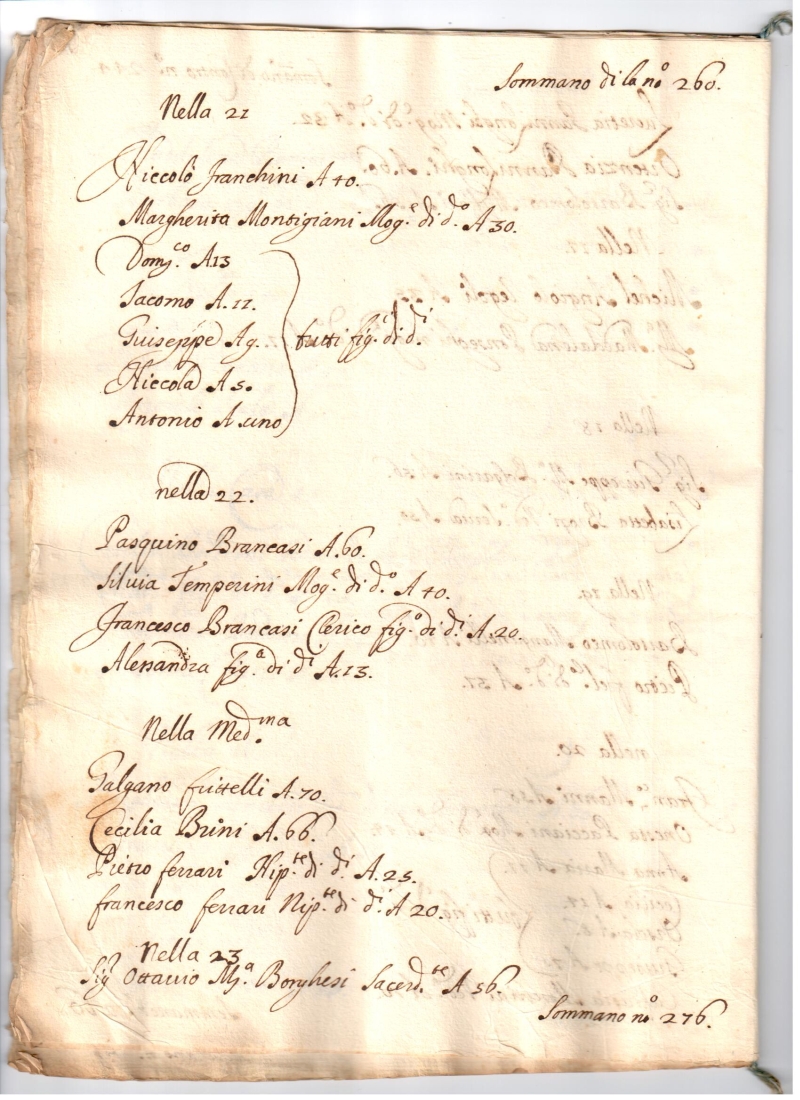 Sommano di la nº 260.
Nella 21
Niccolò Franchini A 40.
Margherita Montigiani Mog.ᵉ di d.º A 30.
Dom.ᶜᵒ A 13
Iacomo A. 11.
Guiseppe A 9.
Niccola A 5.
Antonio A uno
tutti fig.ⁱ di d.ⁱ
nella 22.
Pasquino Brancasi A. 60.
Silvia Temperini Mog.ᵉ di d.º A 40.
Francesco Brancasi Clerico fig.º di d.ⁱ A. 20.
Alessandra fig.ᵃ di d.ⁱ A. 13.
Nella Med.ᵐᵃ
Galgano A. 70.
Cecilia Brini A. 66.
Pietro ferrari Nip.ᵗᵉ di d.ⁱ A. 25.
francesco ferrari Nip.ᵗᵉ di d.ⁱ A 20.
Nella 23
Sig Ottavio M.ᵃ Borghesi Sacerd.ᵗᵉ A 56.
Sommano nº 276.